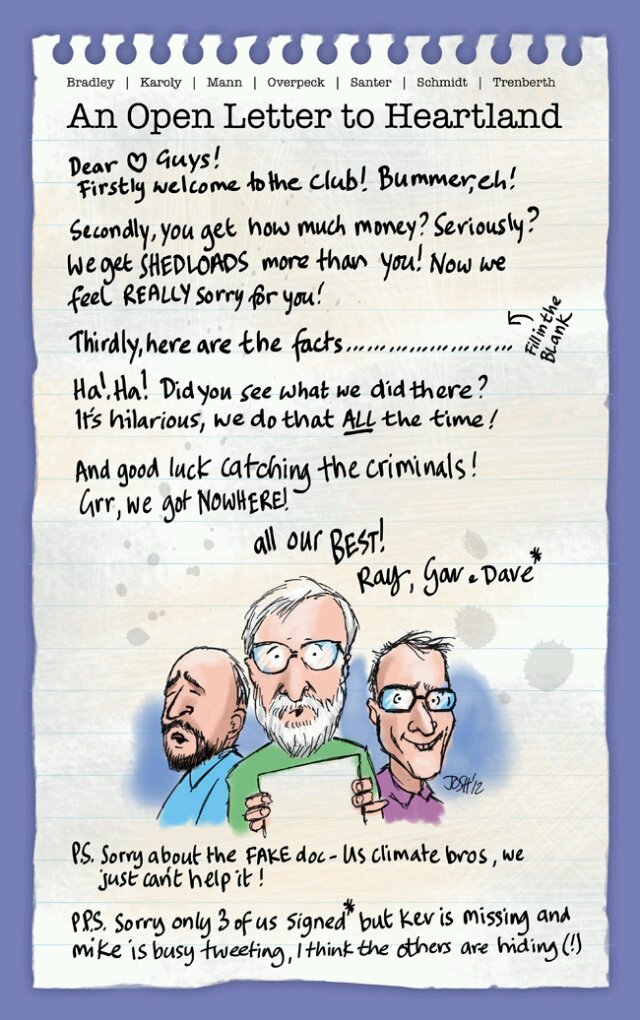 Bradley | Karoly | Mann | Overpeck | Santer | Schmidt | Trenberth
An Open Letter to Heartland
Dear ♡ Guys!
Firstly welcome to the club! Bummer, eh!
Secondly, you get how much money? Seriously?
We get SHEDLOADS more than you! Now we
feel REALLY sorry for you!
Thirdly, here are the facts......................
Fill in the
BLANK
Ha! Ha! Did you see what we did there?
It's hilarious, we do that ALL the time!
And good luck catching the criminals!
Grr, we got NOWHERE!
all our BEST!
Ray, Gav & Dave*
JOSH '12
P.S. Sorry about the FAKE doc - Us climate bros, we
just can't help it!
P.P.S. Sorry only 3 of us signed* but Kev is missing and
mike is busy tweeting, I think the others are hiding (!)